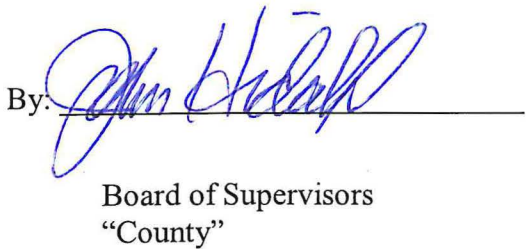 By: John
Board of Supervisors
“County”